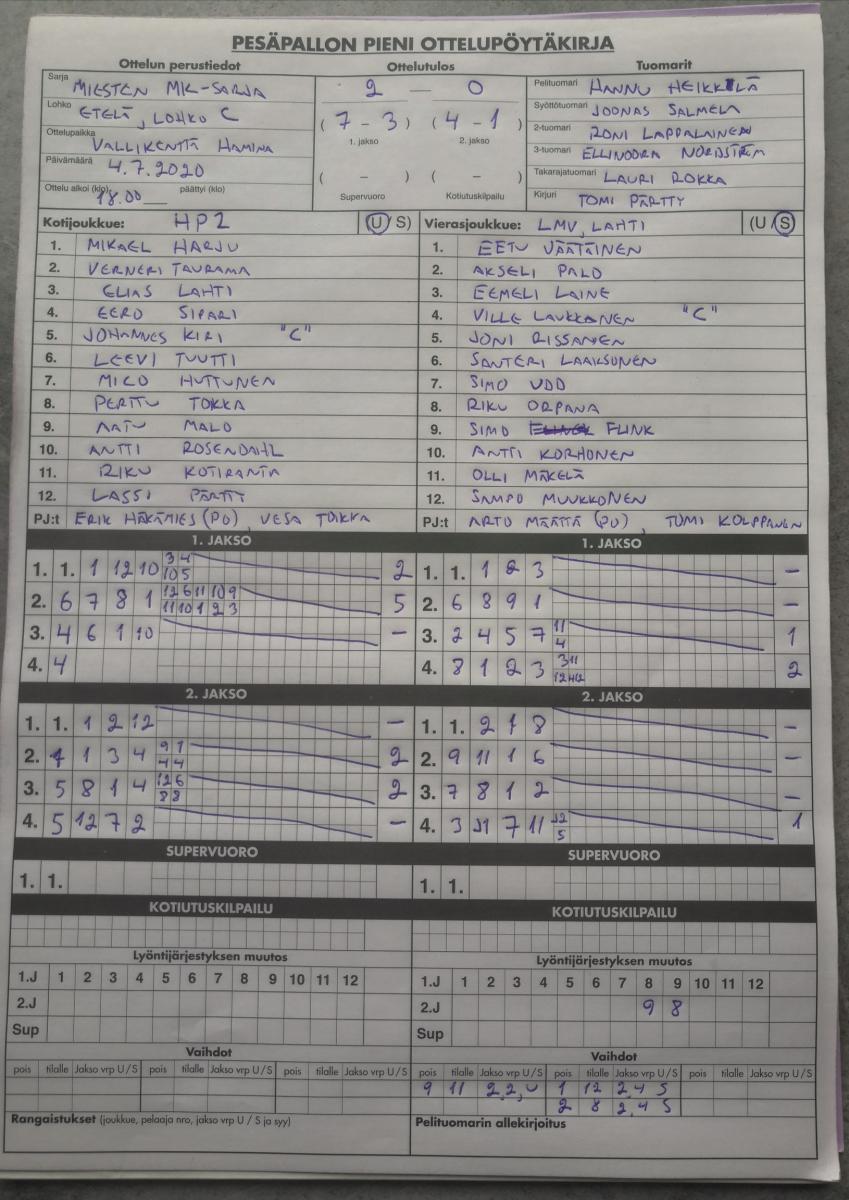 PESÄPALLON PIENI OTTELUPÖYTÄKIRJA
Ottelun perustiedot Ottelutulos Tuomarit
Sarja MIESTEN MK-SARJA 2 — 0 Pelituomari HANNU HEIKKILÄ
Lohko ETELÄ, LOHKO C ( 7 - 3 ) ( 4 - 1 ) Syöttötuomari JOONAS SALMELA
Ottelupaikka VALLIKENTTÄ HAMINA 1. jakso 2. jakso 2-tuomari RONI LAPPALAINEN
Päivämäärä 4.7.2020 3-tuomari ELLINOORA NORDSTRÖM
( - ) ( - ) Takarajatuomari LAURI ROKKA
Ottelu alkoi (klo) 18.00 päättyi (klo) Supervuoro Kotiutuskilpailu Kirjuri TOMI PÄRTTY
Kotijoukkue: HP2 (U S) Vierasjoukkue: LMV, LAHTI (U S)
1. MIKAEL HARJU 1. EETU VÄÄTÄINEN
2. VERNERI TAURAMA 2. AKSELI PALO
3. ELIAS LAHTI 3. EEMELI LAINE
4. EERO SIPARI 4. VILLE LAUKKANEN "C"
5. JOHANNES KIRI "C" 5. JONI RISSANEN
6. LEEVI TUUTTI 6. SANTERI LAAKSONEN
7. MICO HUTTUNEN 7. SIMO UDD
8. PERTTU TOKKA 8. RIKU ORPANA
9. AATU MALO 9. SIMO FLINK
10. ANTTI ROSENDAHL 10. ANTTI KORHONEN
11. RIKU KOTIRANTA 11. OLLI MÄKELÄ
12. LASSI PÄRTTY 12. SAMPO MUUKKONEN
PJ:t ERIK HÄKÄMIES (PO), VESA TOIKKA PJ:t ARTO MÄÄTTÄ (PO), TOMI KOLPPANEN
1. JAKSO 1. JAKSO
1. 1. 1 12 10 3 4 10 5 2 1. 1. 1 2 3 –
2. 6 7 8 1 12 6 11 10 9 11 10 1 2 3 5 2. 6 8 9 1 –
3. 4 6 1 10 – 3. 2 4 5 7 11 4 1
4. 4 4. 8 1 2 3 3 11 2
2. JAKSO 2. JAKSO
1. 1. 1 2 12 – 1. 1. 2 7 8 –
2. 1 3 4 9 1 4 4 2 2. 9 11 1 6 –
3. 5 8 1 4 12 6 8 8 2 3. 7 8 1 2 –
4. 5 12 7 2 – 4. 3 7 11 12 5 1
SUPERVUORO SUPERVUORO
1. 1. 1. 1.
KOTIUTUSKILPAILU KOTIUTUSKILPAILU
Lyöntijärjestyksen muutos Lyöntijärjestyksen muutos
1.J 1 2 3 4 5 6 7 8 9 10 11 12 1.J 1 2 3 4 5 6 7 8 9 10 11 12
2.J 2.J 9 8
Sup Sup
Vaihdot Vaihdot
pois tilalle Jakso vrp U/S pois tilalle Jakso vrp U/S pois tilalle Jakso vrp U/S pois tilalle Jakso vrp U/S pois tilalle Jakso vrp U/S pois tilalle Jakso vrp U/S
9 11 2,2,U 1 12 2,4 S
2 8 2,4 S
Rangaistukset (joukkue, pelaaja nro, jakso vrp U / S ja syy) Pelituomarin allekirjoitus